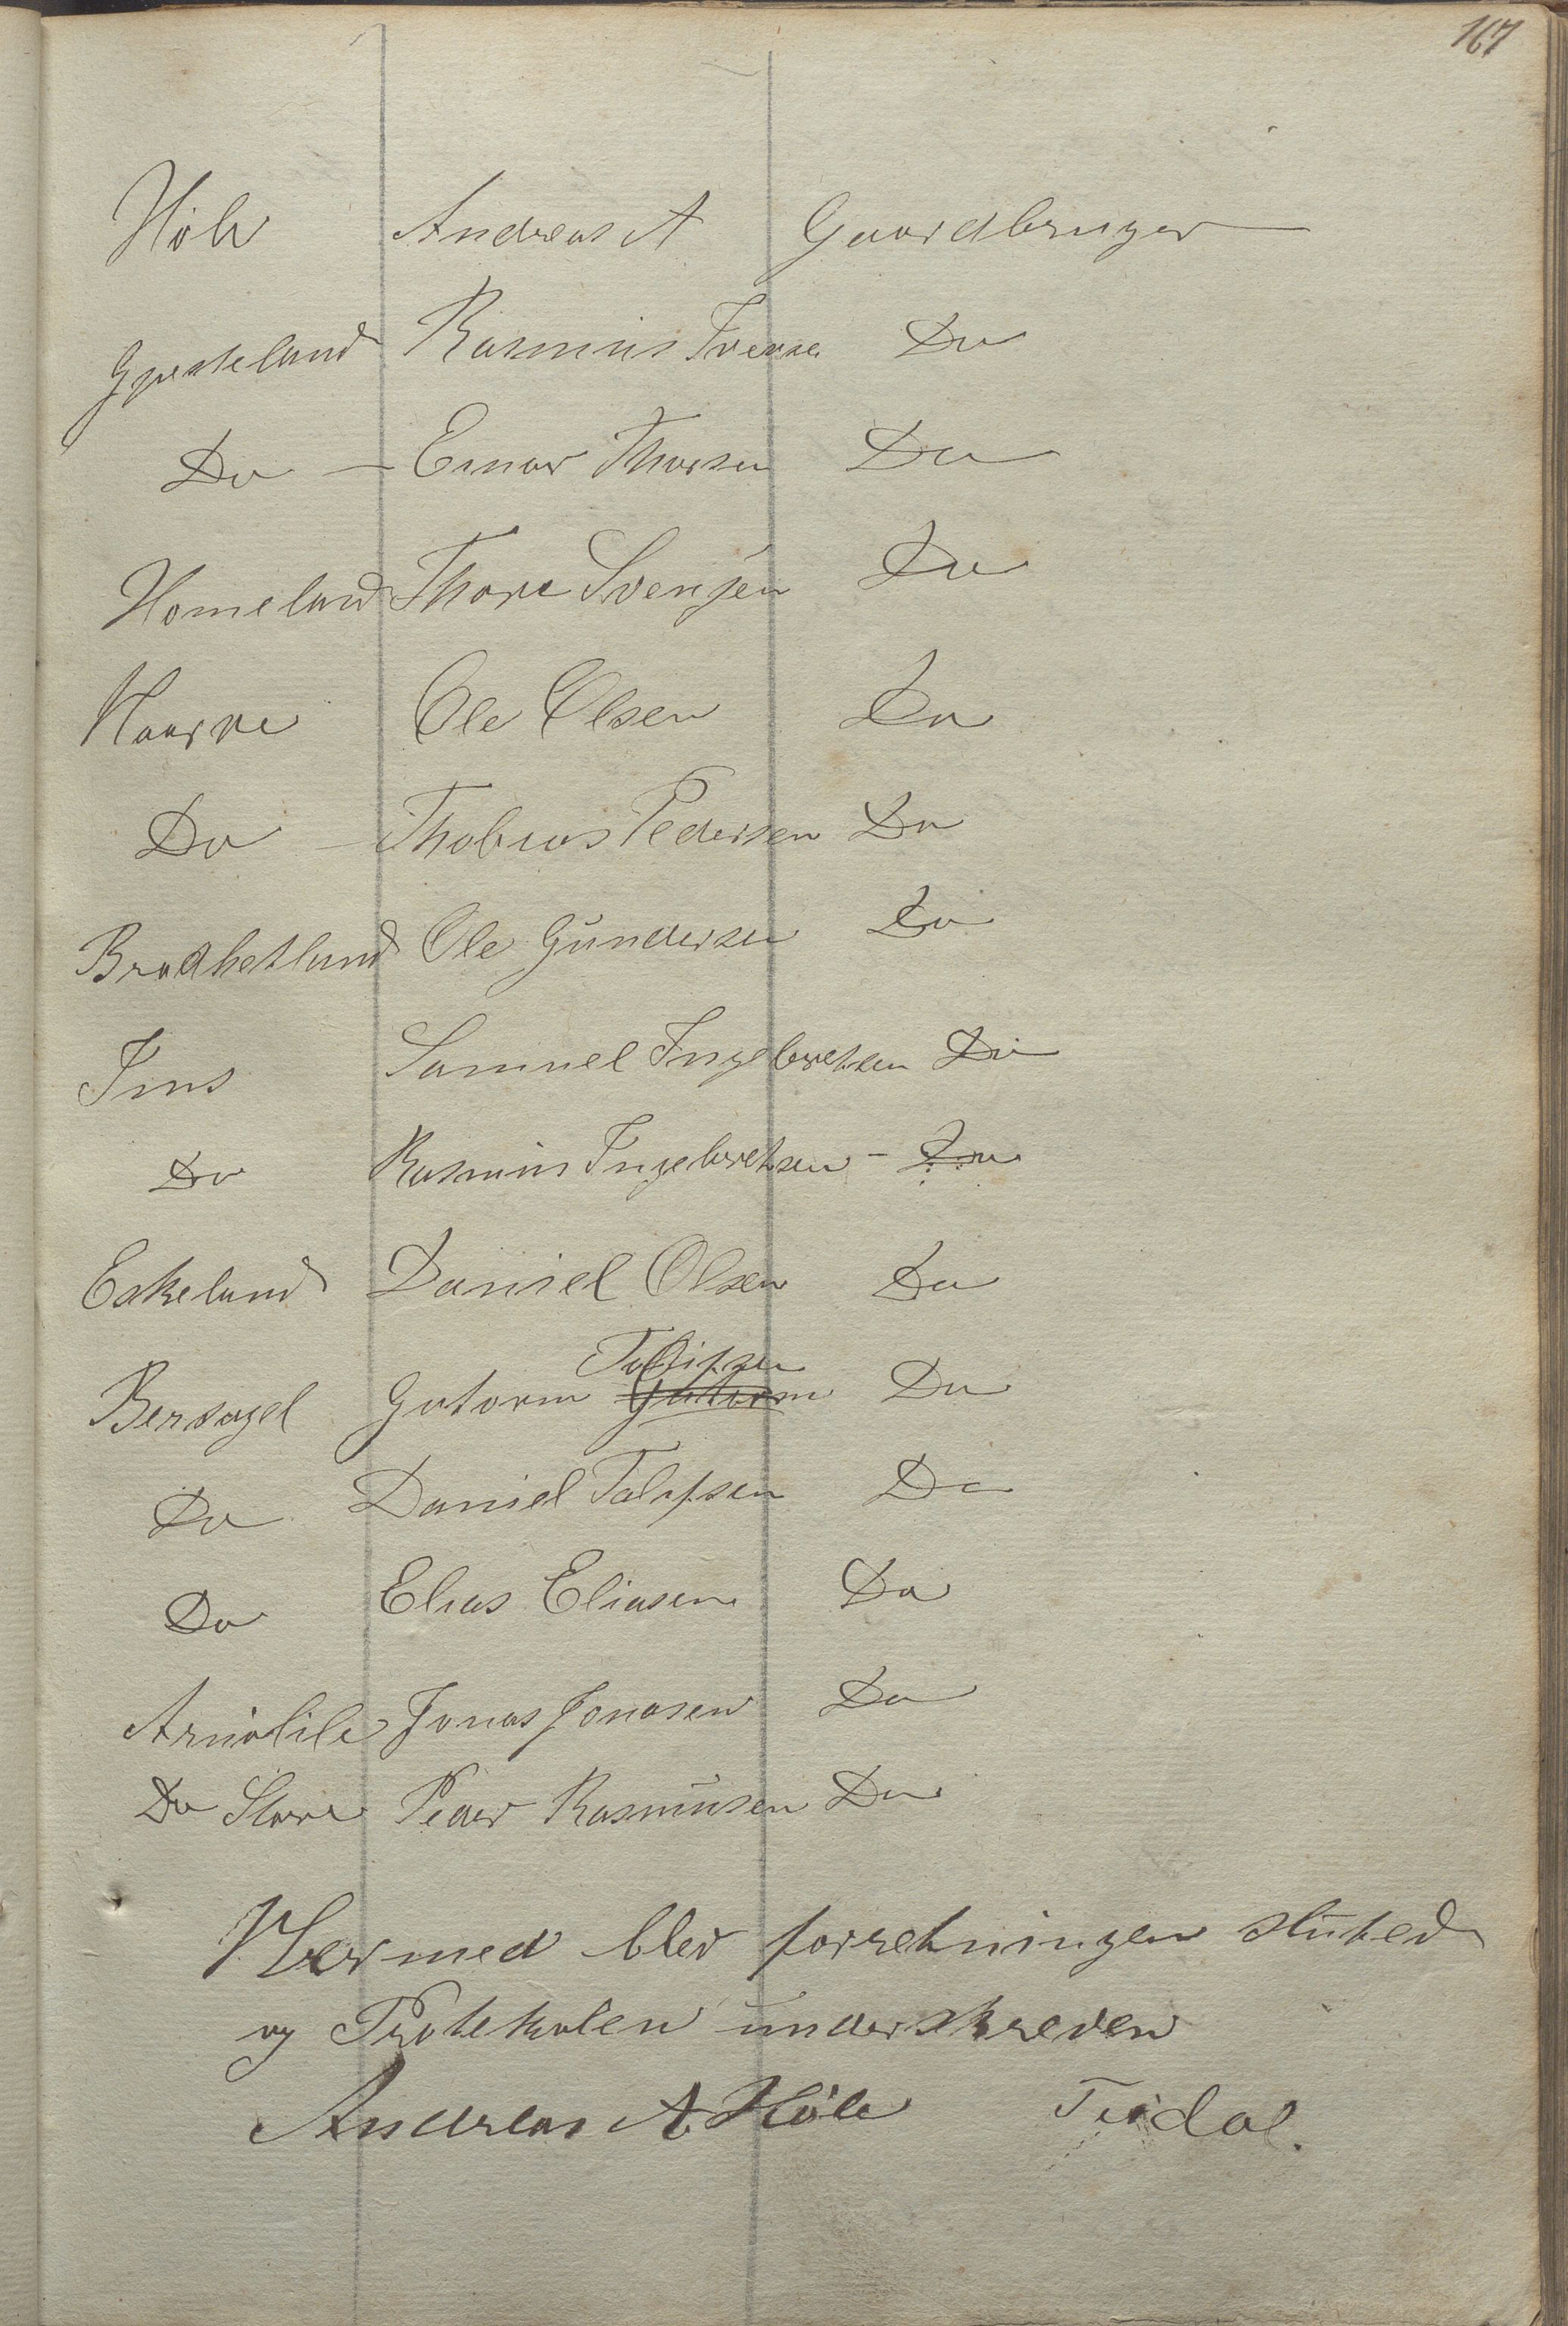 167
Høle Andreas A Gaardbruger
Gjeskeland Rasmus Iverse Do
Do - Einar Thorsen Do
Homeland Thore Svensen Do
Haarve Ole Olsen Do
Do - Thobias Pedersen Do
Bradhetland Ole Gundersen Do
Ims Samuel Ingebretsen Do
Do Rasmus Ingebretsen - Do
Eskeland Daniel Olsen Do
Tollifsen
Bersagel Gutorm Gutorm Do
Do Daniel Tolifsen Do
Do Elias Eliasen Do
Ariølile Jonas Jonasen Do
Do Store Peder Rasmusen Do
Hermed blev forretningen sluted
og Protekolen underskreven
Andreas A Høle